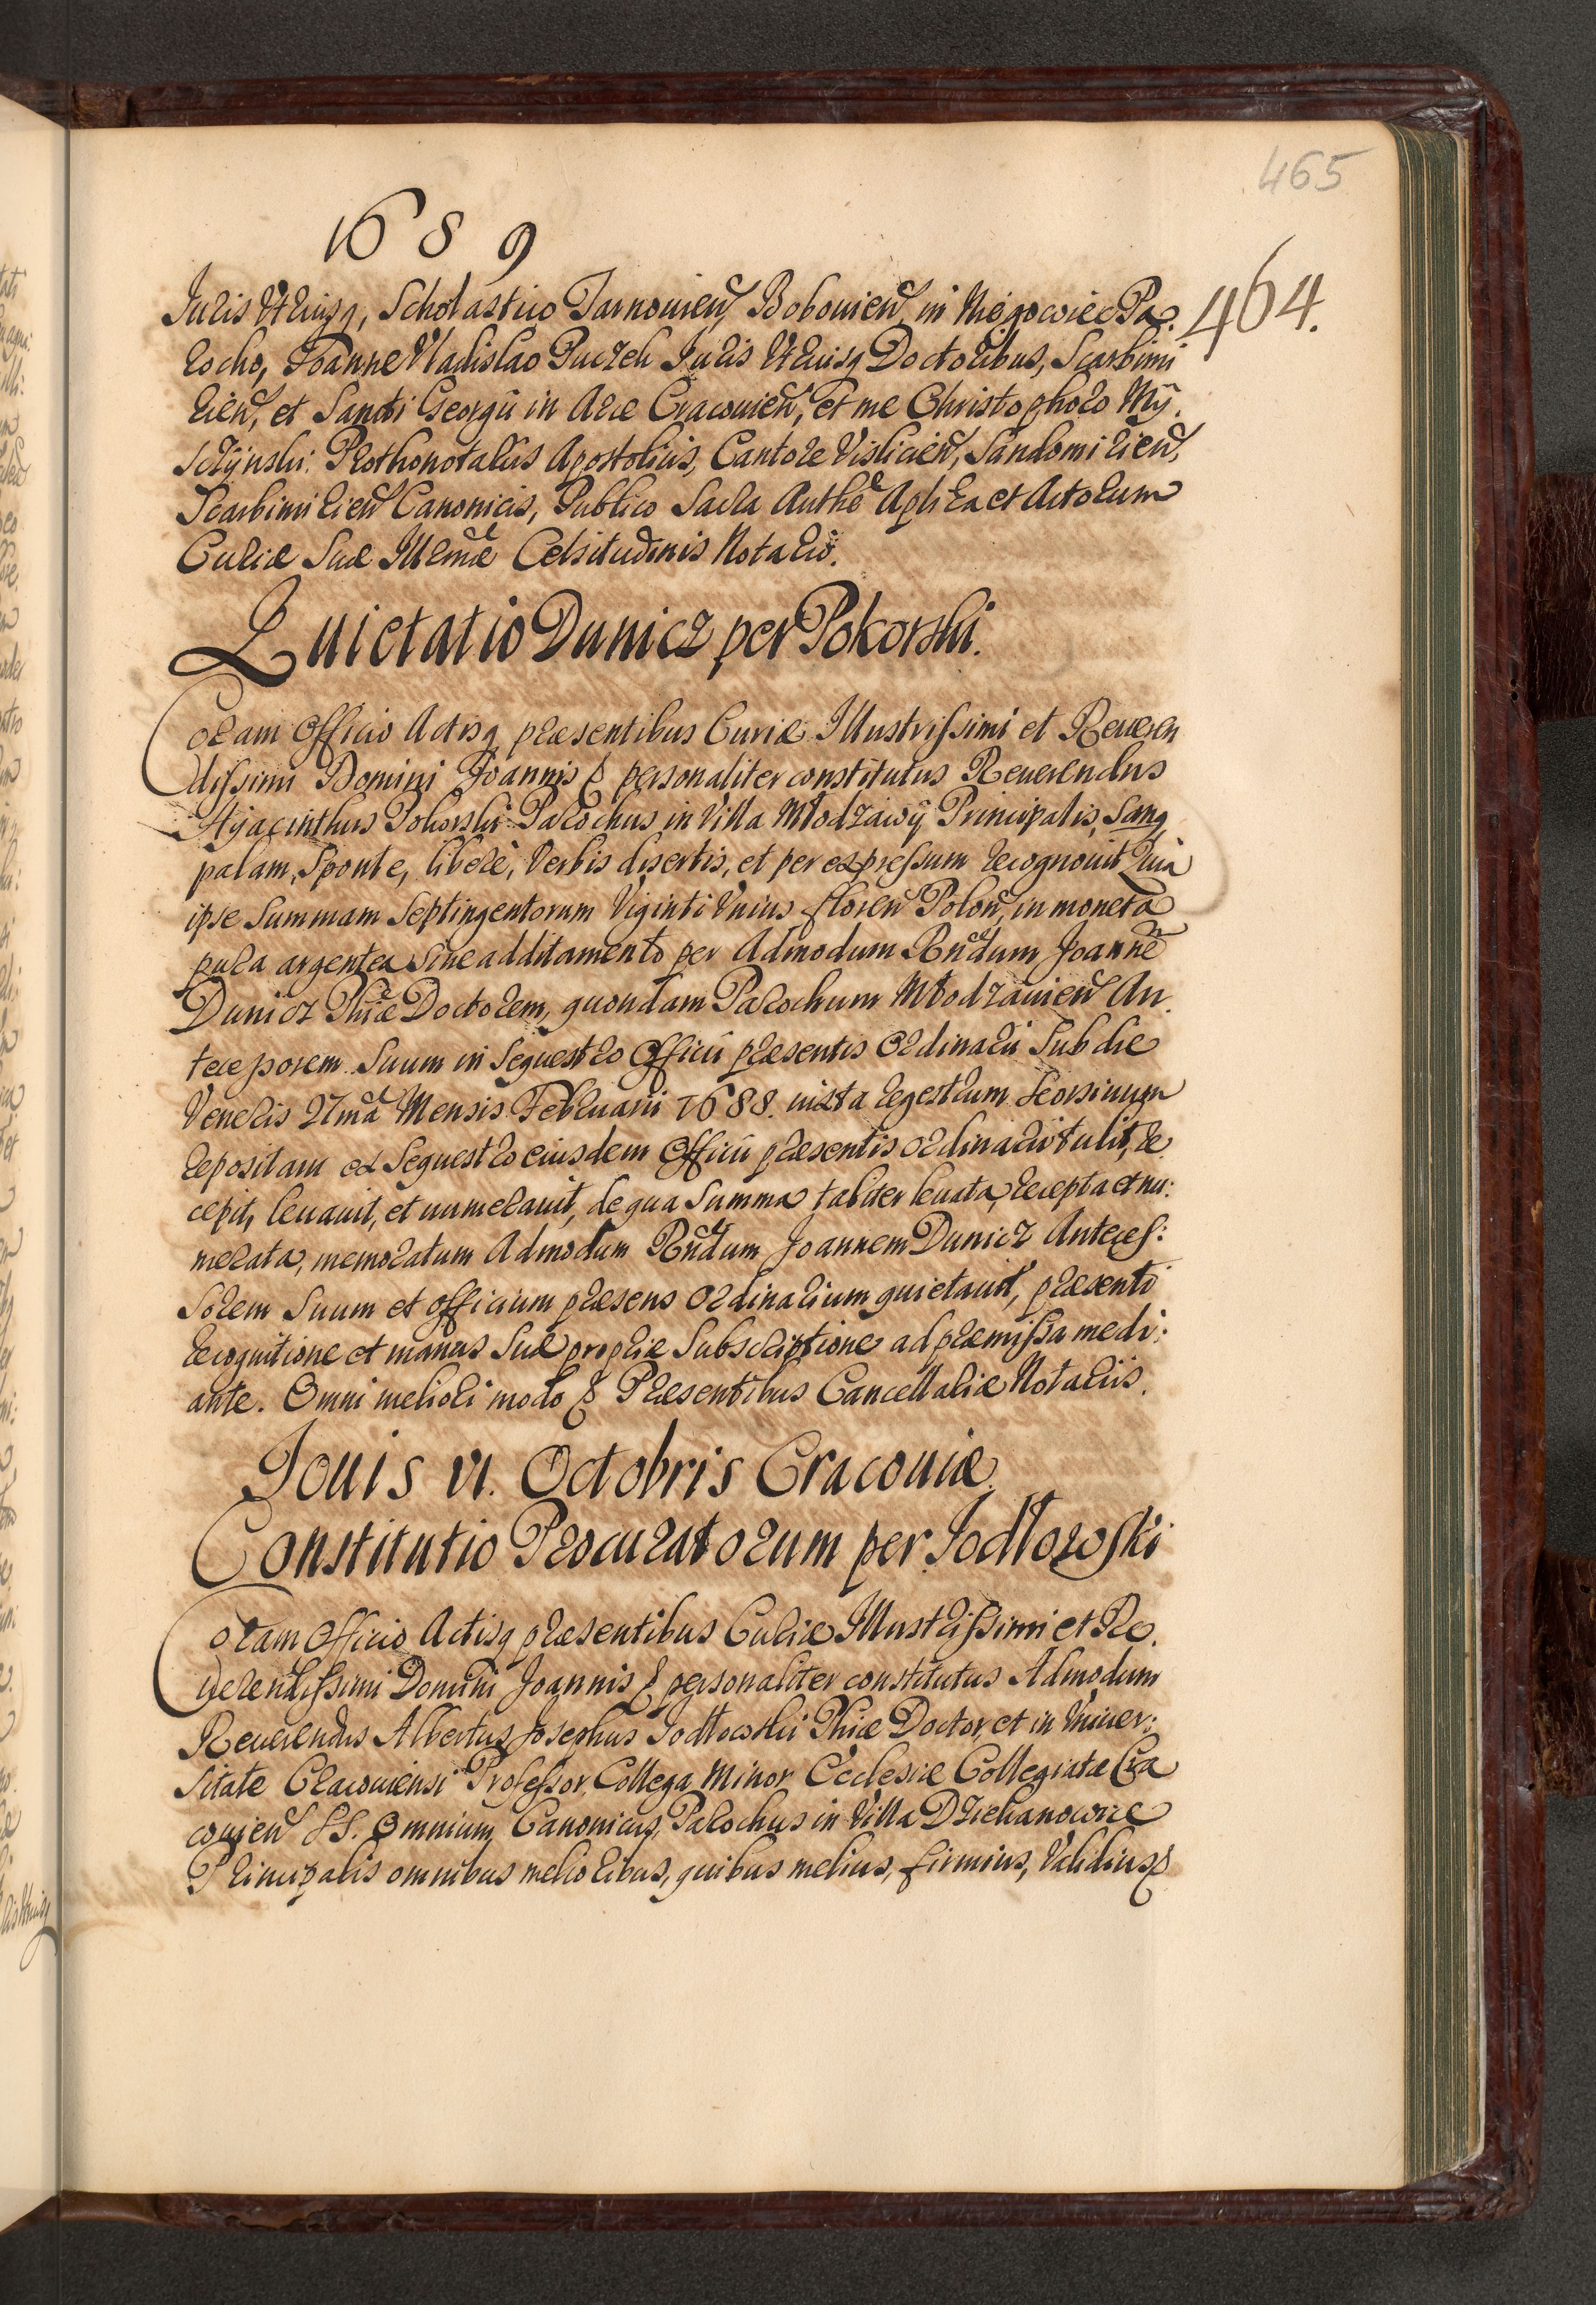 465
1689
464.
Juris Vtriusq, Scholastico Tarnouien, Bobouien, in Niegowiec Pa-
rocho, Joanne Vladislao Puczek Juris Vtriusq Doctoribus, Scarbimi
rien, et Sancti Georgii in Arce Cracouien, et me Christophoro My-
szynski: Prothonotariis Apostolicis, Cantore Vislicien, Sandomirien,
Scarbimirien Canonicis, Publico Sacra Authe Aplica et Actorum
Curiæ Suæ Illmæ Celsitudinis Notario.
Quietatio Dunicz per Pokorski.
Coram Officio Actisq præsentibus Curiæ Illustrissimi et Reueren
dissimi Domini Joannis & personaliter constitutus Reuerendus
Hyacinthus Pokorski Parochus in Villa Młodzawy Principalis, Sanq
palam, Sponte, liberè, Verbis disertis, et per expressum recognouit Quia
ipse Summam Septingentorum Viginti Vnius floren Polon, in moneta
pura argentea Sine additamento per Admodum Rndum Joannē
Dunicz Phiæ Doctorem, quondam Parochum Młodzauien An-
tecessorem Suum in Sequestro Officii præsentis Ordinarii Sub die
Veneris 27ma Mensis Februarii 1688. iuxta regestrum Seorsiuum
repositam ex Sequestro eiusdem Officii præsentis Ordinarii tulit, re
cepit, leuauit, et numerauit, de qua Summa taliter leuata, recepta et nu:
merata, memoratum Admodum Rndum Joannem Dunicz Anteces:
Sorem Suum et Officium præsens Ordinarium quietauit, præsenti
recognitione et manus Suæ propriæ Subscriptione ad præmissa medi:
ante. Omni meliori modo & Præsentibus Cancellariæ Notariis.
Jouis VI. Octobris Cracouiæ.
Constitutio Procuratorum per Jodłowski
Coram Officio Actisq præsentibus Curiæ Illustrissimi et Re-
uerendissimi Domini Joannis & personaliter constitutus Admodum
Reuerendus Albertus Josephus Jodłowski Phiæ Doctor, et in Vniuer:
Sitate Cracouiensi Professor, Collega Minor Ecclesiæ Collegiatæ Cra
couien SS. Omnium Canonicus, Parochus in Villa Dziekanowice
Principalis omnibus melioribus, quibus melius, firmius, Validius &